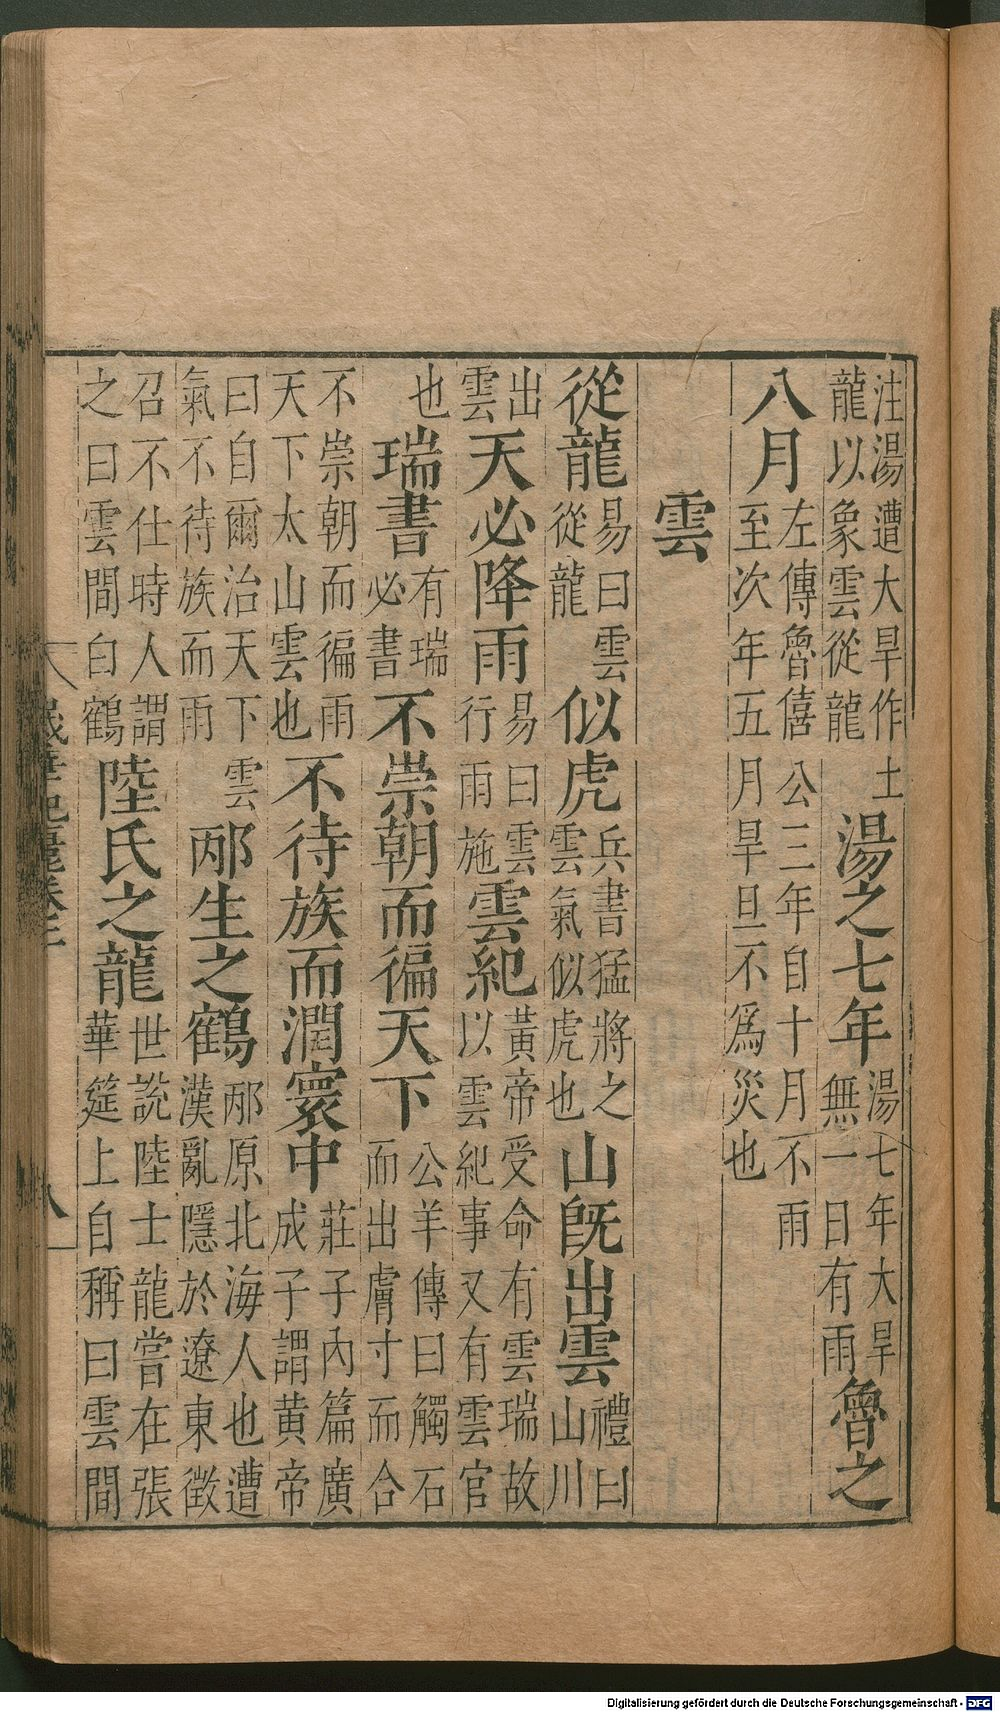 注湯遭大旱作土龍以象雲從龍湯之七年湯七年大旱無一日有雨魯之
八月左傳魯僖公三年自十月不雨至次年五月旱旦不爲災也
雲
從龍易曰雲從龍似虎兵書猛將之雲氣似虎也山旣出雲禮曰山川
出雲天必降雨易曰雲行雨施雲紀黃帝受命有雲瑞故以雲紀事又有雲官
也瑞書有瑞必書不崇朝而徧天下公羊傳曰觸石而出膚寸而合
不崇朝而徧雨天下太山雲也不待族而潤寰中莊子內篇廣成子謂黄帝
曰自爾治天下雲氣不待族而雨邴生之鶴邴原北海人也遭漢亂隱於遼東徵
召不仕時人謂之曰雲間白鶴陸氏之龍世說陸士龍嘗在張華筵上自稱曰雲間
歲華紀麗卷
八
Digitalisierung gefördert durch die Deutsche Forschungsgemeinschaft - DFG